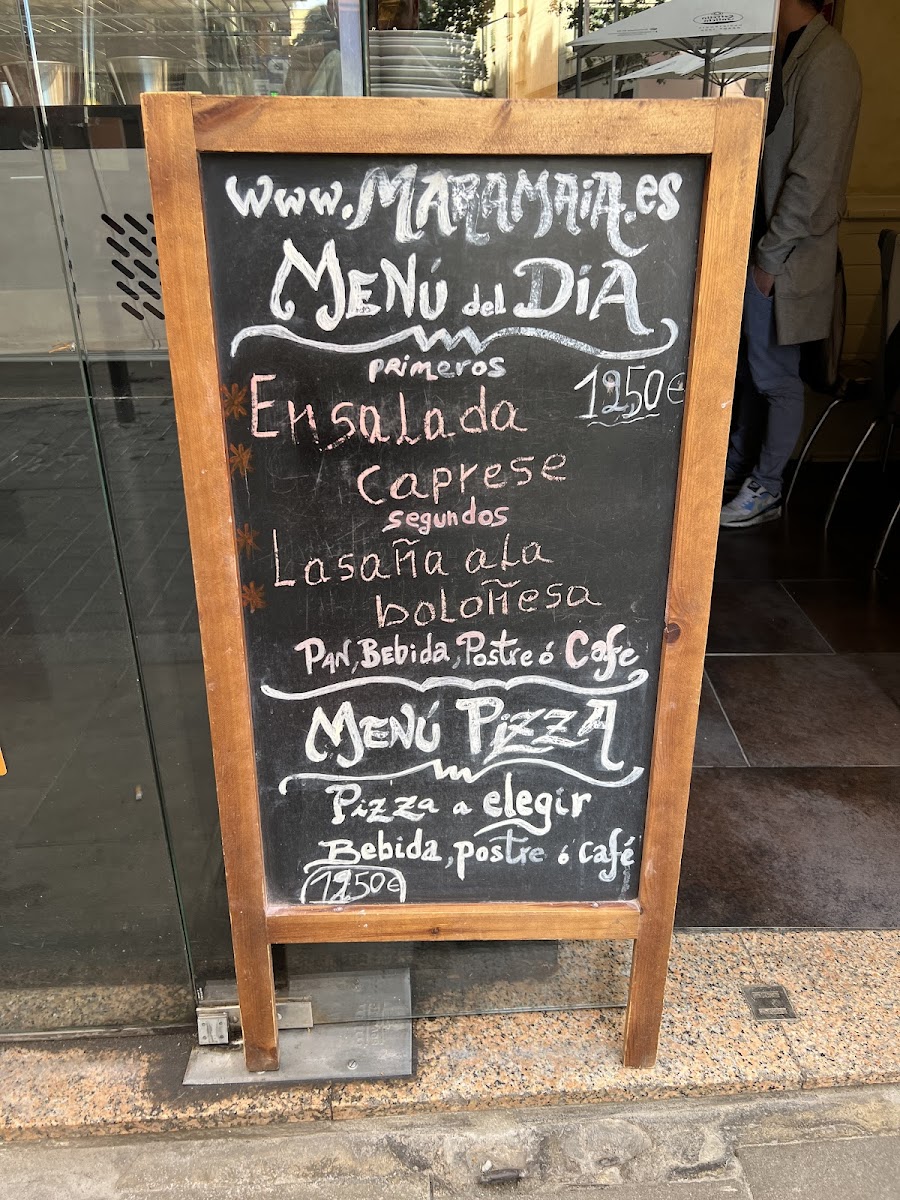 www.MARAMAiA.es
MENÚ del DíA
PRimeros
Ensalada 1250€
caprese
segundos
Lasaña a La
boloñesa
PAN, Bebida, Postre ó Cafe
MENÚ PizzA
Pizza a elegir
Bebida, postre ó café
1250€